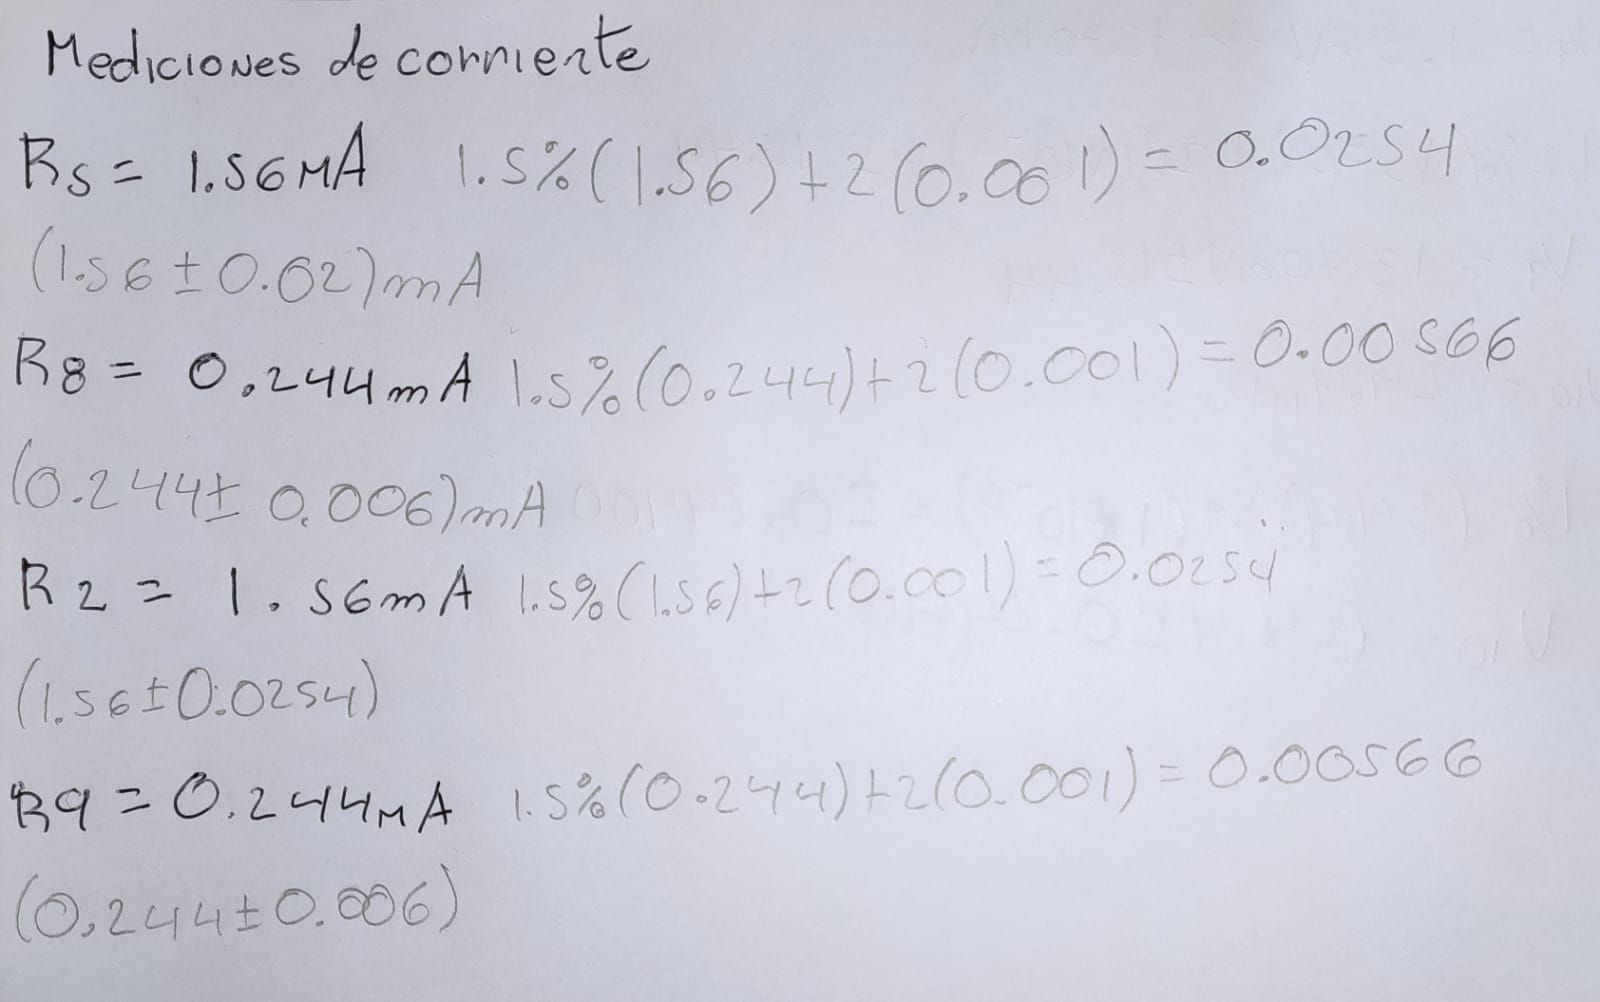 Mediciones de corriente
R5 = 1.56mA 1.5%(1.56)+2(0.001) = 0.0254
(1.56±0.02)mA
R8 = 0.244mA 1.5%(0.244)+2(0.001) = 0.00566
(0.244±0.006)mA
R2 = 1.56mA 1.5%(1.56)+2(0.001) = 0.0254
(1.56±0.0254)
R9 = 0.244mA 1.5%(0.244)+2(0.001) = 0.00566
(0,244±0.006)